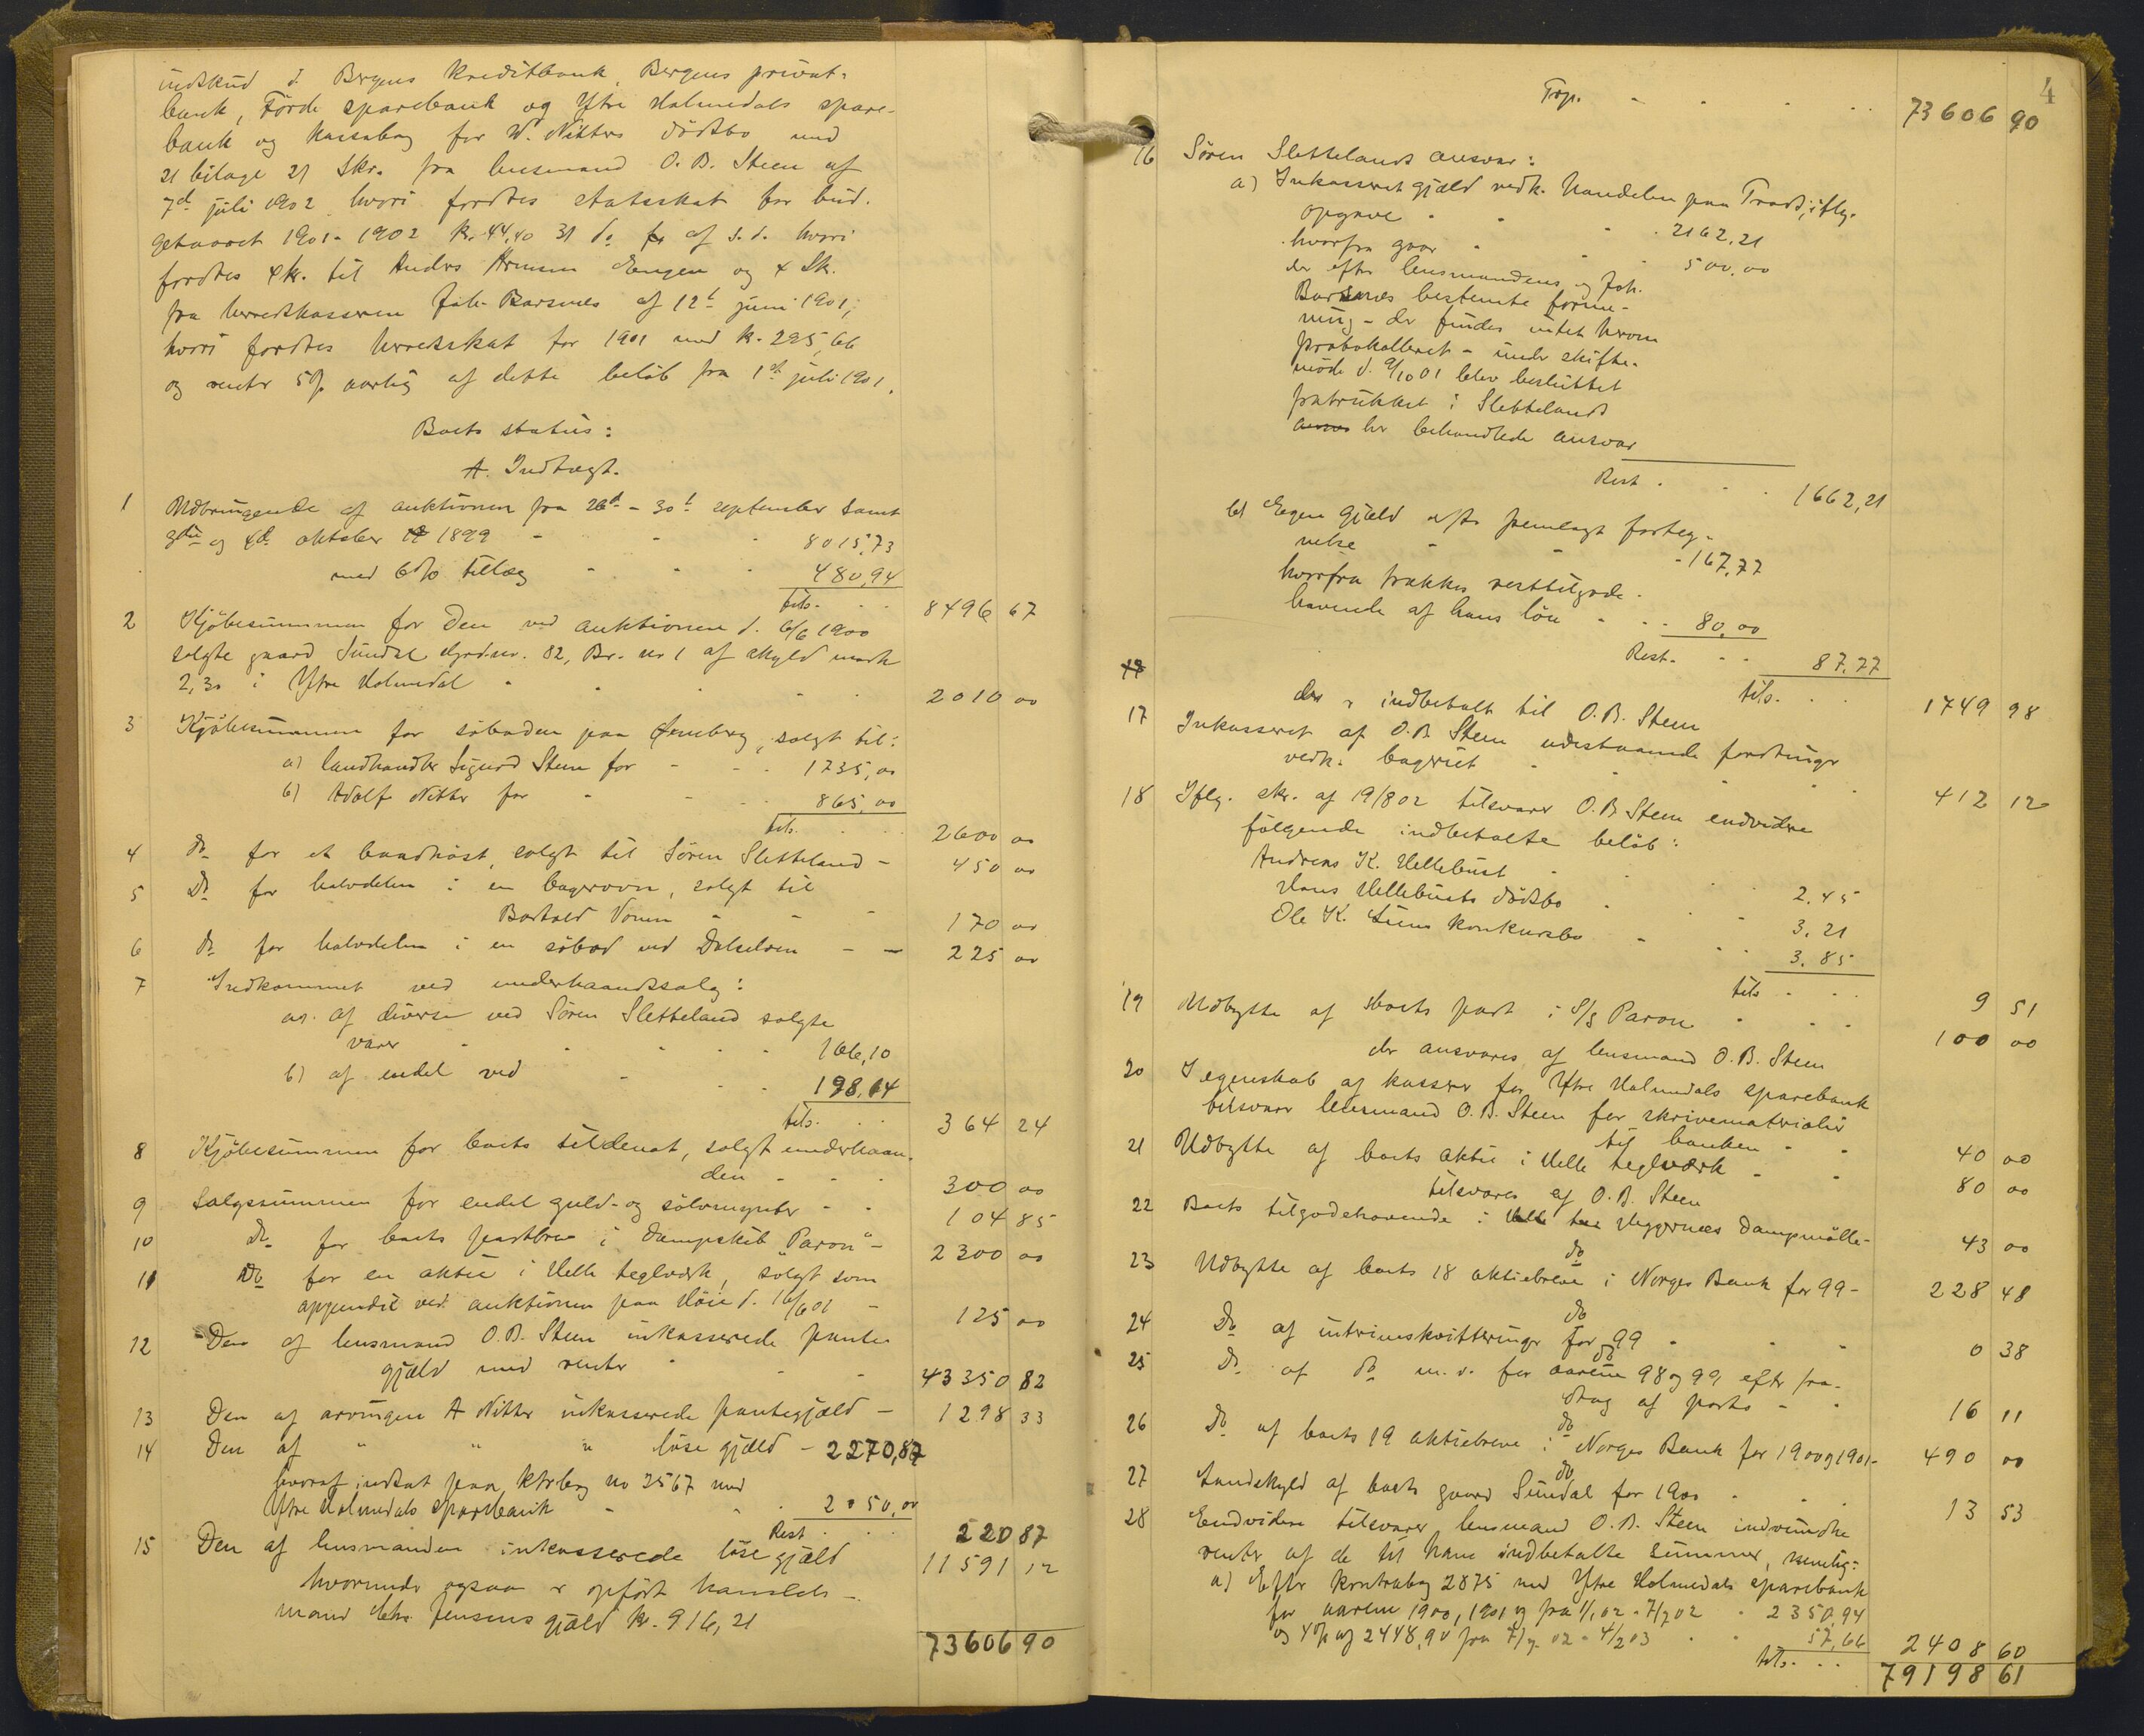 indskud i Bergens Kreditbank, Bergens privat-
bank, Förde sparebank og Ytre Holmedals spare-
bank og kassabog for W. Nitters dödsbo med
21 bilage 21 Skr. fra lensmand O. B. Steen af
7d juli 1902 hvori fordres statsskat for bud-
getaaret 1901-1902 kr. 44,40 31 do af s. d. hvori
fordres kr. til Anders Engen og 4 Sk.
fra herredskasseren Joh. Barsnes af 12t juni 1901,
hvori fordres herredsskat for 1901 med kr. 295,66
og renter 5% aarlig af dette beløb fra 1st juli 1901.
Boets status:
A. Indtægt.
1 Udbringende af auktionen fra 26d - 30t september samt
3die og 4de oktober 1899 - - - 8015,73
med 6% tillæg - - - 480,94
tils. . . 8496 67
2 Kjöbesummen for den ved auktionen d. 6/6 1900
solgte gaard Sundal Grdnr. 82, Br. nr 1 af skyld mark
2,30 i Ytre Holmedal - - - - - 2010 00
3 Kjöbesummen for söboden paa , solgt til:
a) landhandler Sigurd Steen for - - - 1735,00
b) Adolf Nitter for - - - 865,00
tils. . . 2600 00
4 do for et baadnöst, solgt til Sören Sletteland - 450 00
5 Do for halvdelen i en bagerovn, solgt til
Bertold Vonen - - - 170 00
6 do for halvdelen i en söbod ved Dalselven - - 225 00
7 Indkommet ved underhaandssalg:
a). af diverse ved Sören Sletteland solgte
varer - - - - 166,10
b) af endel ved - - - 198,14
tils. . . 364 24
8 Kjöbesummen for boets tildenat, solgt underhaan-
den - - - 300 00
9 Salgssummen for endel guld- og sölvmynter - - 104 85
10 Do for boets partbrev i Dampskib "Paron" - 2300 00
11 Do for en aktie i Helle teglværk, solgt som
appendix ved auktionen paa Höie d. 16/6 01 - 125 00
12 Den af lensmand O. B. Steen inkasserede pante
gjæld med renter - - - 43350 82
13 Den af arvingen A Nitter inkasserede pantegjæld - 1298 33
14 Den af " " " löse gjæld - 2270,87
hvoraf indsat paa ktrbog no 3567 med
Ytre Holmedals Sparebank - - - 2050,00
Rest . . . 220 87
15 Den af lensmanden inkasserede löse gjæld 11591 12
hvorunder ogsaa er opfört handels-
mand Chr. Jensens gjæld kr. 916,21
73606 90
4
Trp. - - - . . 73606 90
16 Sören Slettelands ansvar:
a) Inkasseret gjæld vedk. handelen paa Trod, iflg.
opgave - - - 2162,21
hvorfra gaar - - - 500,00
der efter lensmandens og Joh.
Barsnes bestemte forme-
ning - der findes intet herom
protokolleret - under skifte-
möde d. 9/10 01 blev besluttet
fratrukket i Slettelands
her behandlede ansvar
Rest . . . 1662,21
b) Egen gjæld efter fremlagt forteg-
nelse - - - 167,77
hvorfra trækkes resttilgode-
havende af hans lön - - - 80,00
Rest. . . 87,77
tils. . . 1749 98
der er indbetalt til O. B. Steen
17 Inkasseret af O. B. Steen udestaaende fordringer
vedk. bageriet - - - - 412 12
18 Iflg. skr. af 19/8 02 tilsvarer O. B. Steen endvidere
fölgende indbetalte belöb:
Andreas K. Hellebust - - - 2.45
Hans Hellebusts dödsbo - - - 3.21
Ole K. konkursbo - - - 3.85
tils . . . 9 51
19 Udbytte af boets part i S/S Paron - - - 100 00
der ansvares af lensmand O. B. Steen
20 I egenskab af kasser for Ytre Holmedals sparebank
tilsvarer lensmand O. B. Steen for skrivematerialier
til banken - - 40 00
21 Udbytte af boets aktie i Helle teglværk - - 80 00
tilsvares af O. B. Steen
22 Boets tilgodehavende i Dampmölle- 43 00
do
23 Udbytte af boets 18 aktiebreve i Norges Bank for 99 - 228 48
do
24 Do af intrimskvitteringer for 99 - - - 0 38
do
25 Do af do m. v. for aarene 98 og 99 efter fra-
drag af porto - - 16 11
do
26 Do af boets 19 aktiebreve i Norges Bank for 1900 og 1901 - 490 00
do
27 Landskyld af boets gaard Sundal for 1900 - - - 13 53
28 Endvidere tilsvarer lensmand O. B. Steen indvundne
renter af de til ham indbetalte summer, nemlig:
a) Efter kontrabog 2875 med Ytre Holmedals sparebank
for aarene 1900, 1901 og fra 1/1 02 - 7/7 02 - 2350,94
og 4% af 2448,90 fra 7/7 02 - 4/2 03 - - 57,66 2408 60
tils. . . 79198 61